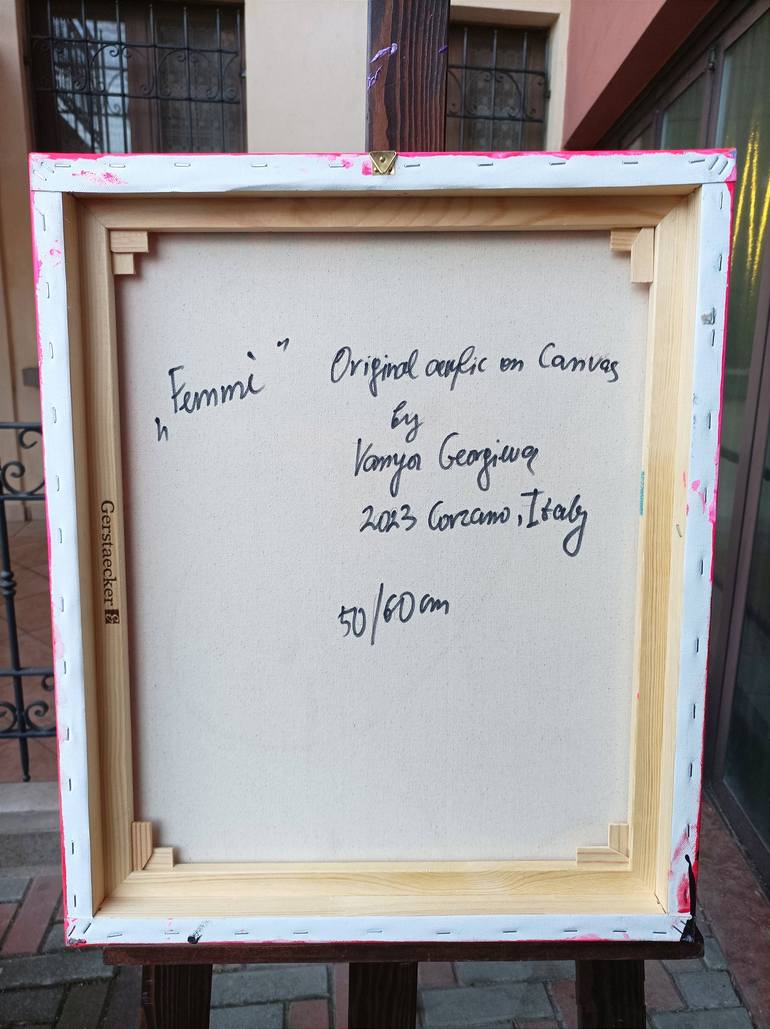 „Femmi" Original acrylic on Canvas
by
Vanya Georgieva
2023 Corzano, Italy
50/60 cm
Gerstaecker